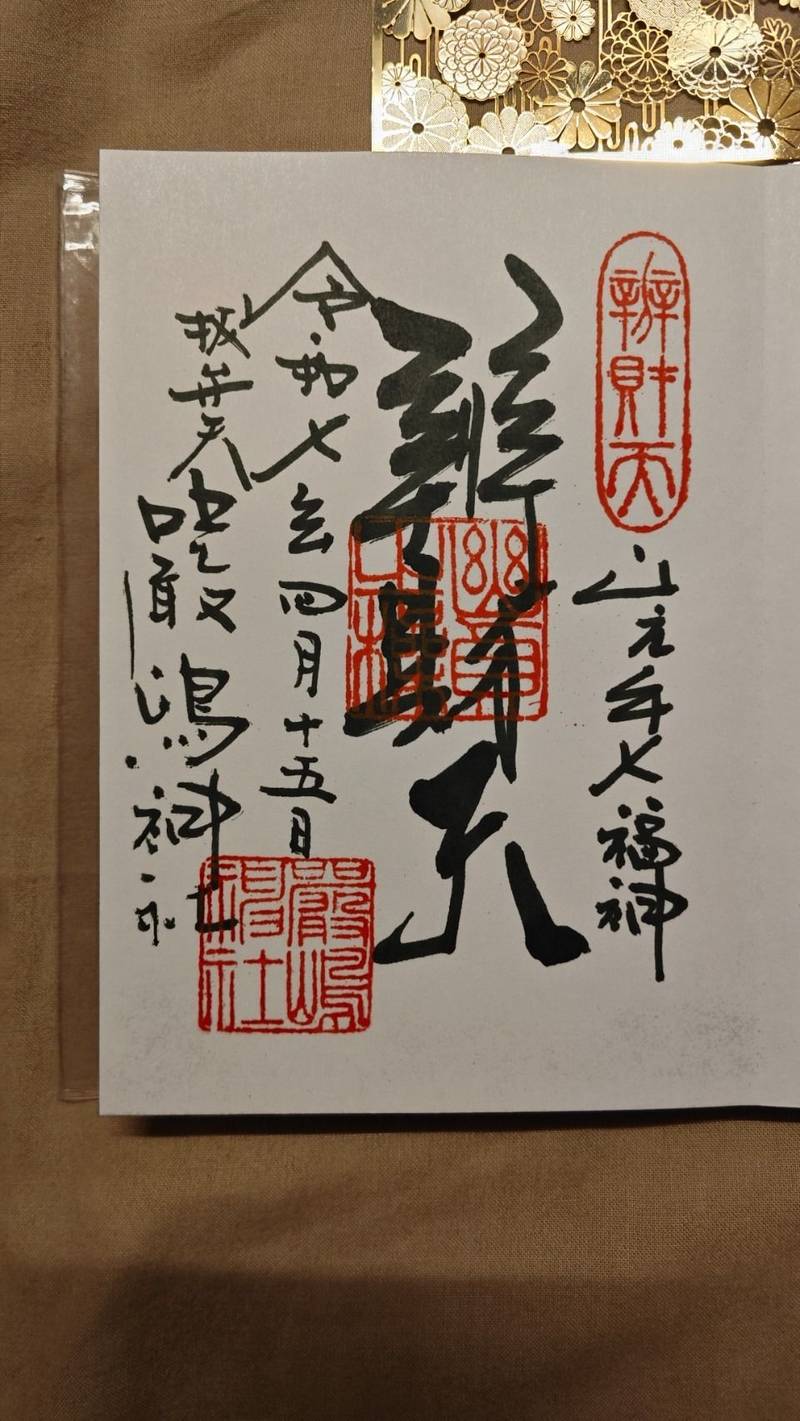 辨財天
山之手七福神
辨財天
令和七年四月十五日
抜弁天
嚴嶋神社
嚴嶋
神社